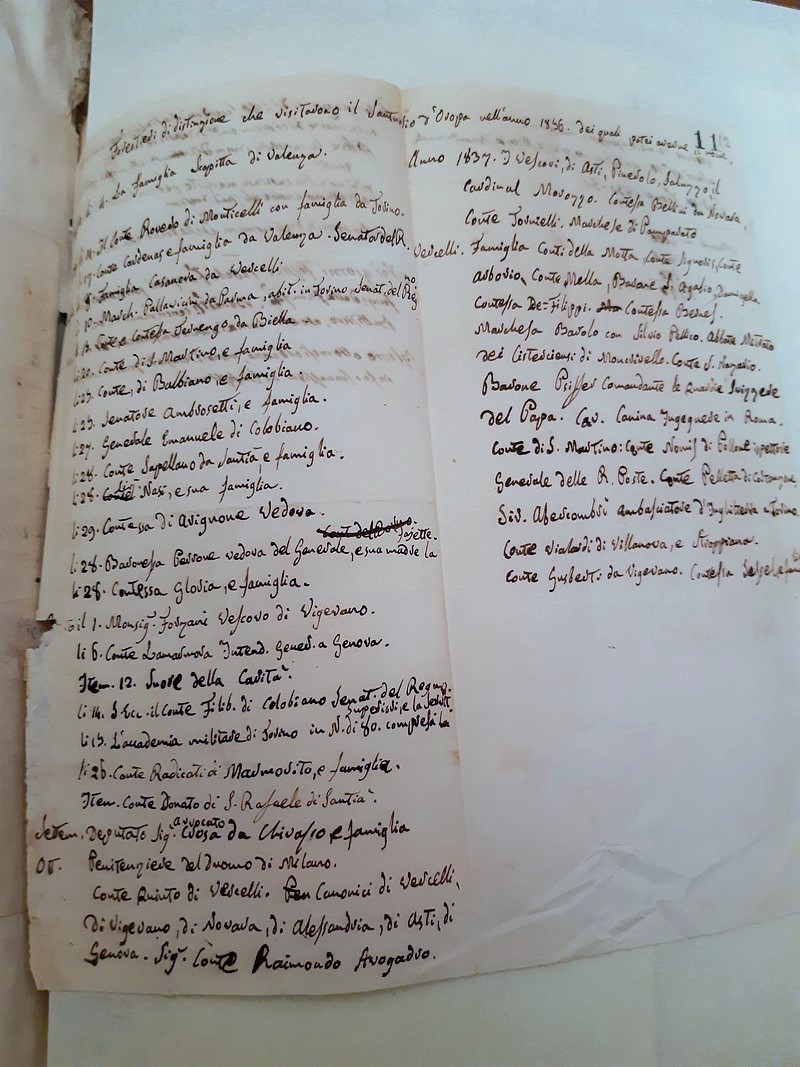 Forestieri di distinzione che visitarono il Santuario d'Oropa nell'anno 1856. dei quali potei averne il nome.
11
La famiglia Scapitta di Valenza.
Il Conte Rovero di Monticelli con famiglia da Torino.
17. Conte Cardenas e famiglia da Valenza. Senat. del R.
8. Famiglia Casanova da Vercelli
10. March. Pallavicini da Parma, abit. in Torino, Senat. del Regno
13. Conte e Contessa Ternengo da Biella
li 20. Conte di S. Martino, e famiglia
li 23. Conte, di Balbiano e famiglia.
li 25. Senatore Ambrosetti, e famiglia.
li 27. Generale Emanuele di Colobiano.
li 28. Conte Sapellano da Santià e famiglia.
li 28. Conte Nasi, e sua famiglia.
li 29. Contessa di Avignone Vedova.
li 28. Baronessa Perrone vedova del Generale, e sua madre la Fajette.
li 28. Contessa Gloria, e famiglia.
il 1. Monsig.r Forzani Vescovo di Vigevano.
li 6. Conte Lamarmora Intend. Gener. a Genova.
Item. 12. Suore della Carità.
li 14. S. Ecc. il Conte Filib. di Colobiano Senat. del Regno.
li 15. L'accademia militare di Torino in N. di 80. compresi la
superiori, e la servit.
li 26. Conte Radicati di Marmorito, e famiglia.
Item. Conte Donato di S. Rafaele di Santià.
Settem. Deputato Sig.r Avvocato Crosa da Chivasso e famiglia
Ott. Penitenziere del Duomo di Milano.
Conte Quinto di Vercelli. Canonici di Vercelli,
di Vigevano, di Novara, di Alessandria, di Asti, di
Genova. Sig.r Conte Raimondo Avogadro.
Anno 1837. I Vescovi, di Asti, Pinerolo, Saluzzo il
Cardinal Morozzo. Contessa Bellini da Novara.
Conte Tornielli. Marchese di Pamparato
Vercelli. Famiglia Conti della Motta, Conte Signoris, Conte
Arborio, Conte Mella, Barone S. Agabio, Damigella
Contessa De=Filippi. Contessa Bernes.
Marchesa Barolo con Silvio Pellico. Abbate Mitrato
dei Cisterciensi di Moncrivello. Conte S. Nazario.
Barone Psiffer Comandante le Guardie Svizzere
del Papa. Cav. Canina Ingegnere in Roma.
Conte di S. Martino: Conte Nomis di Pollone ispettore
Generale delle R. Poste. Conte Pelletta di Cortanzone
Sir. Abercombri ambasciatore d'Inghilterra a Torino
Conte Vialardi di Villanova, e Stroppiana.
Conte Gusberti da Vigevano. Contessa